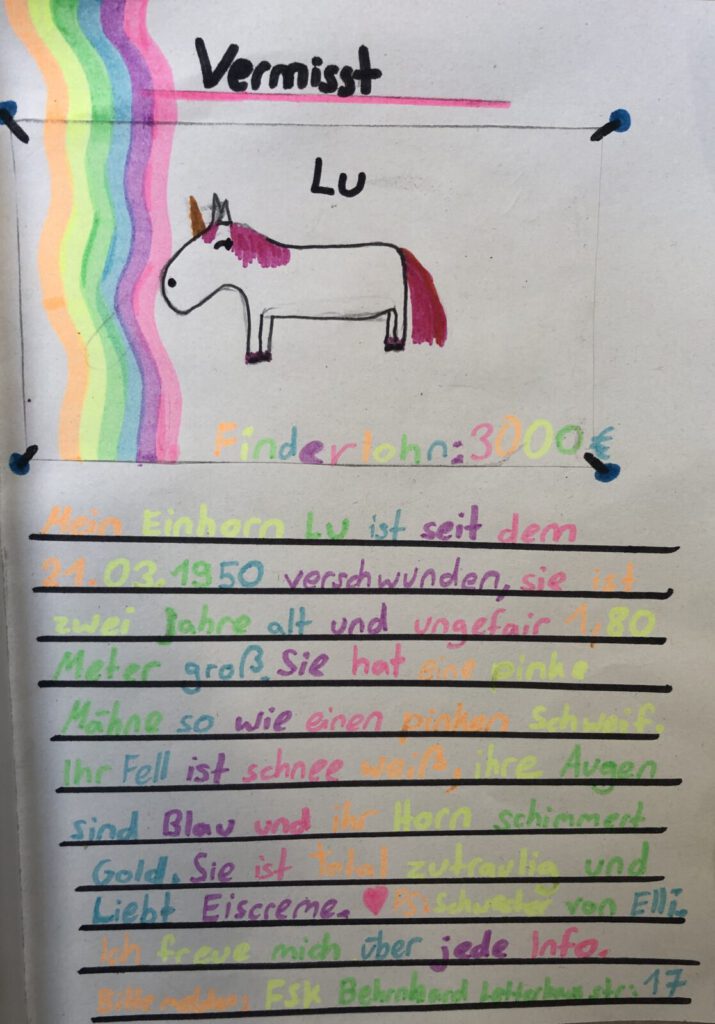 Vermisst
Lu
Finderlohn: 3000€
Mein Einhorn Lu ist seit dem
21.03.1950 verschwunden, sie ist
zwei Jahre alt und ungefair 1,80
Meter groß. Sie hat eine pinke
Mähne so wie einen pinken Schweif.
Ihr Fell ist schnee weiß, ihre Augen
sind Blau und ihr Horn schimmert
Gold. Sie ist total zutraulig und
Liebt Eiscreme. PS: Schwester von Elli.
Ich freue mich über jede Info.
Bitte melden: FSK Str: 17